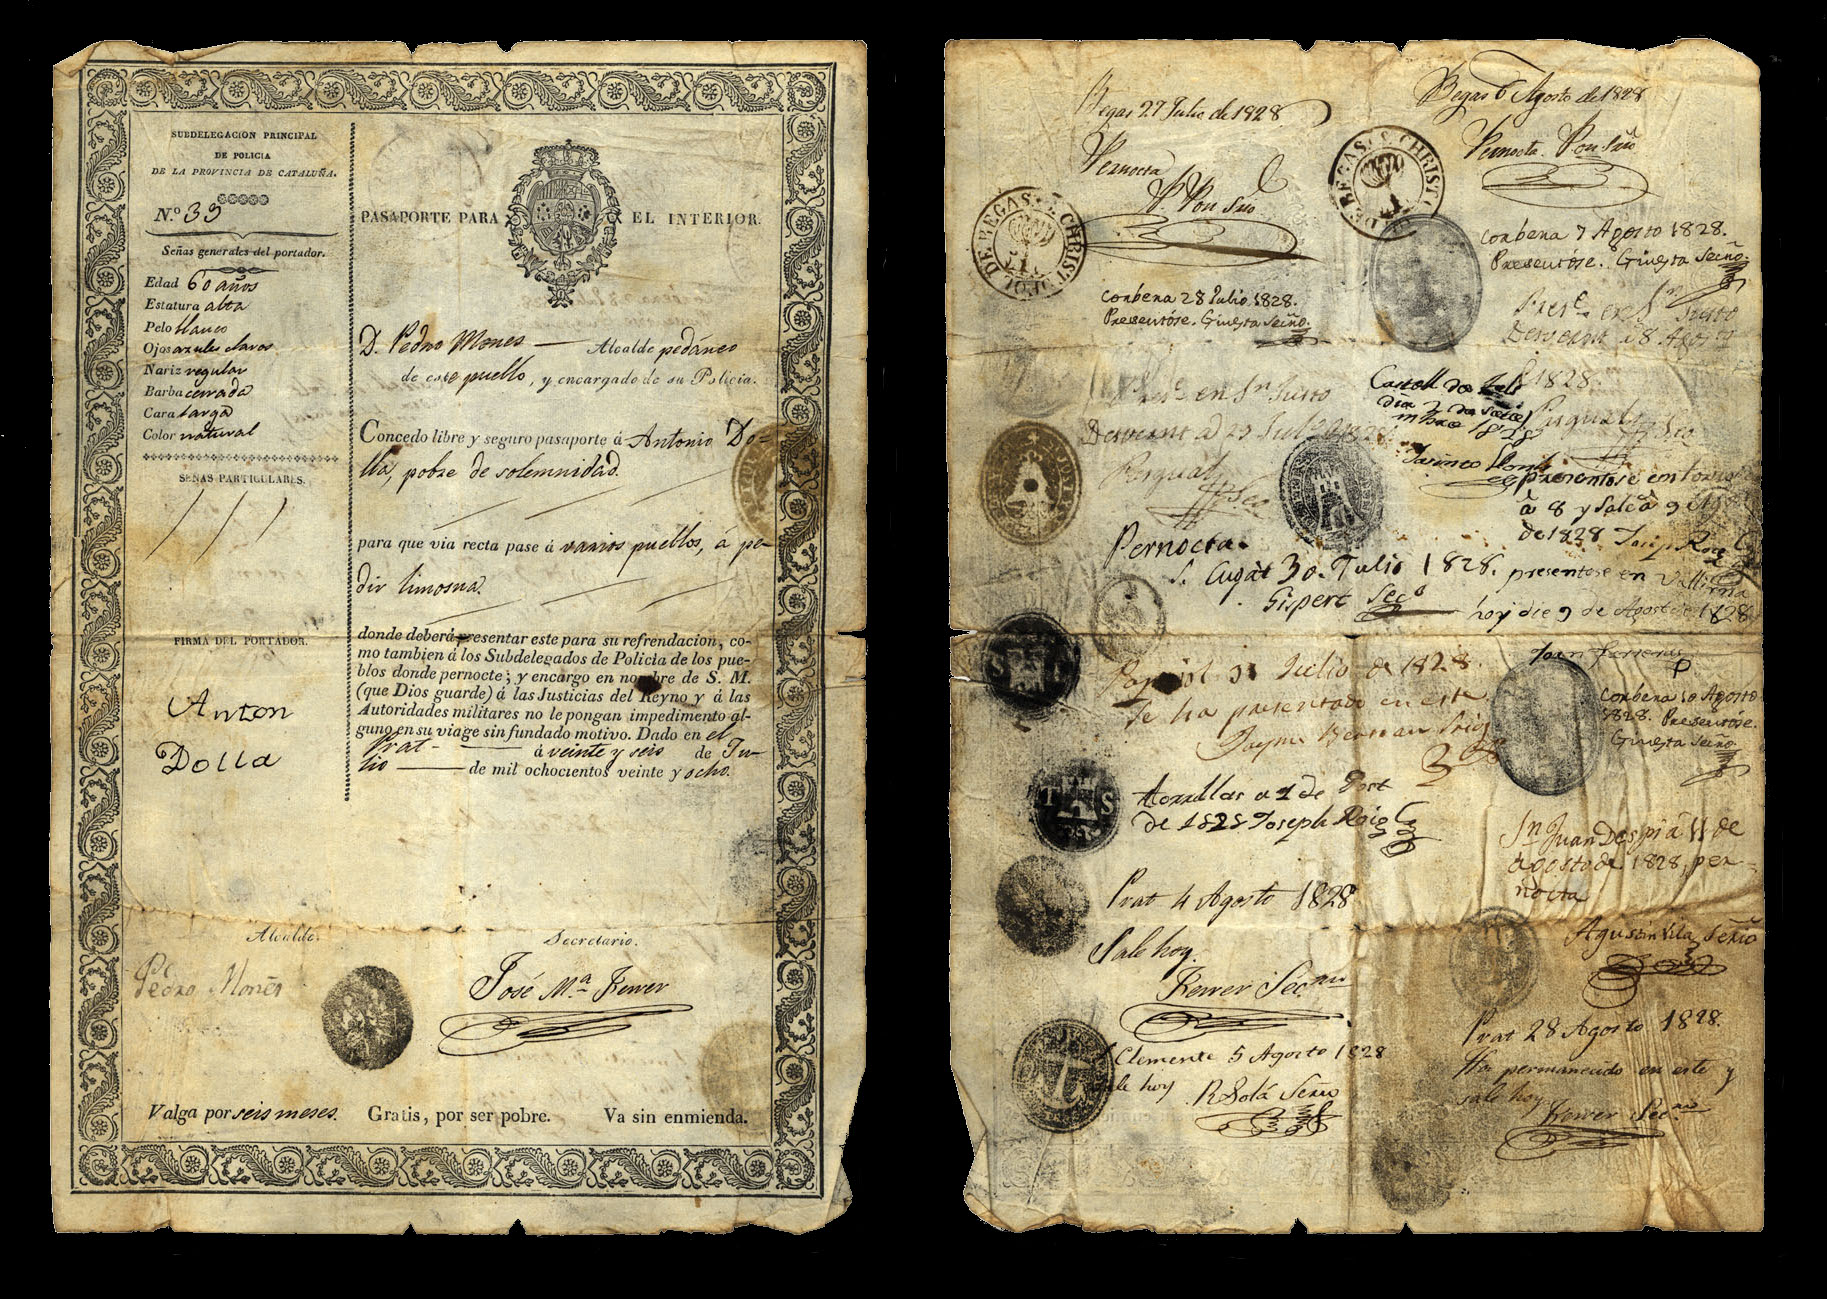 SUBDELEGACION PRINCIPAL
DE POLICIA
DE LA PROVINCIA DE CATALUÑA.
N.º 39
Señas generales del portador.
Edad 60 años
Estatura alta
Pelo blanco
Ojos azules claros
Nariz regular
Barba cerrada
Cara larga
Color natural
SEÑAS PARTICULARES.
FIRMA DEL PORTADOR.
Anton
Dolla
PASAPORTE PARA EL INTERIOR.
D. Pedro Mones Alcalde pedáneo
de este pueblo, y encargado de su Policia.
Concedo libre y seguro pasaporte á Antonio Do=
lla, pobre de solemnidad.
para que via recta pase á varios pueblos, á pe-
dir limosna.
donde deberá presentar este para su refrendacion, co-
mo tambien á los Subdelegados de Policía de los pue-
blos donde pernocte; y encargo en nombre de S. M.
(que Dios guarde) á las Justicias del Reyno y á las
Autoridades militares no le pongan impedimento al-
guno en su viage sin fundado motivo. Dado en el
Prat á veinte y seis de Ju-
lio de mil ochocientos veinte y ocho.
Alcalde.
Secretario.
Pedro Moñes
José M.a Ferrer
Valga por seis meses. Gratis, por ser pobre. Va sin enmienda.
Begas 27 Julio de 1828
Pernocta
P. Pou Srio
DE BEGAS. S. CHRISTOFOL
Corbera 28 Julio 1828.
Presentóse. Ginesta Seciño.
en Sn Justo
Desvern a 29 Jul
Pasqual
Seo
Pernocta.
S. Cugat 30. Julio 1828.
Gispert Sec.o
Papiol 31 Julio de 1828.
Se ha presentado en este
Jayme
Torrellas a 2 de
de 1828 Joseph Roig
Prat 4 Agosto 1828
Sale hoy.
Ferrer Sec.rio
S. Clemente 5 Agosto 1828
sale hoy R Solá Seciño
Begas 6 Agosto de 1828
Pernocta. Pou Sriô
DE BEGAS. S. CHRIST
Corbera 7 Agosto 1828.
Presentóse. Ginesta Seciño.
Pres.e en Sn Justo
Desvern a 8 Agosto
1828.
Pasqual
Seo
Castell de
dia 2 de
1828
presentose en
à 8 y Sale à 9 Ag
de 1828 Josep Roig
presentose en Vallirana
hoy die 9 de Agost de 1828
Joan Ferreras
Corbera 10 Agosto
1828. Presentóse.
Ginesta Seciño.
Sn Juan Despi á 11 de
agosto de 1828, per-
nocta
Agustin Vila Seciño
Prat 28 Agosto 1828.
Ha permanecido en este y
sale hoy
Ferrer Sec.rio